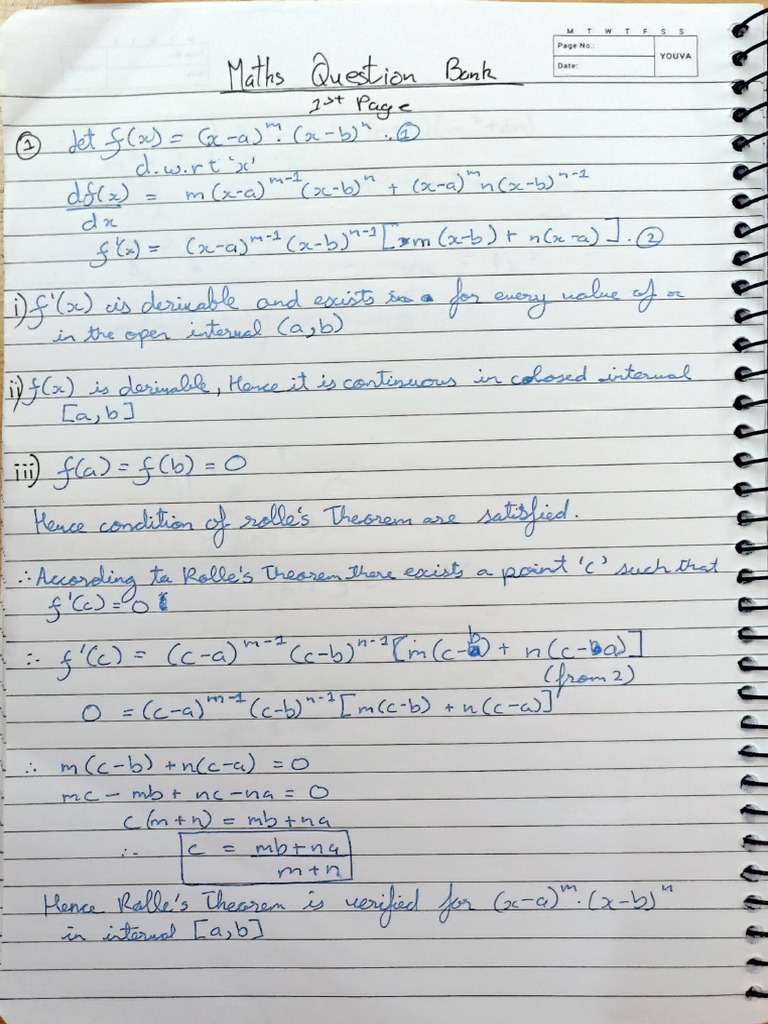 M T W T F S S
Page No.:
YOUVA
Date:
Maths Question Bank
1st Page
① Let f(x) = (x-a)^m. (x-b)^n ..①
d.w.r.t 'x'
df(x)/dx = m(x-a)^m-1 (x-b)^n + (x-a)^m n(x-b)^n-1
f'(x) = (x-a)^m-1 (x-b)^n-1 [m(x-b) + n(x-a)]. ②
i) f'(x) is derivable and exists for every value of x
in the open interval (a,b)
ii) f(x) is derivable, Hence it is continuous in colosed interval
[a,b]
iii) f(a) = f(b) = 0
Hence condition of rolle's Theorem are satisfied.
∴ According to Rolle's Theorem there exists a point 'c' such that
f'(c) = 0
∴ f'(c) = (c-a)^m-1 (c-b)^n-1 [m(c-b) + n(c-a)]
(from 2)
0 = (c-a)^m-1 (c-b)^n-1 [m(c-b) + n(c-a)]
∴ m(c-b) + n(c-a) = 0
mc - mb + nc - na = 0
c(m+n) = mb + na
∴ c = mb + na
m+n
Hence Rolle's Theorem is verified for (x-a)^m . (x-b)^n
in interval [a,b]